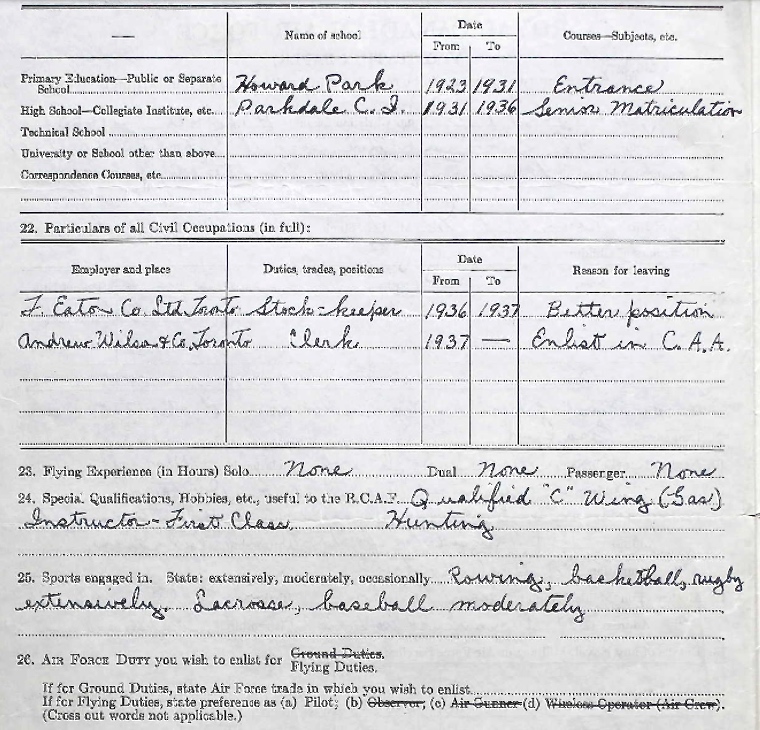 — Name of school Date Courses—Subjects, etc.
From To
Primary Education—Public or Separate
School Howard Park 1923 1931 Entrance
High School—Collegiate Institute, etc. Parkdale C. I. 1931 1936 Senior Matriculation
Technical School
University or School other than above
Correspondence Courses, etc.
22. Particulars of all Civil Occupations (in full):
Employer and place Duties, trades, positions Date Reason for leaving
From To
T. Eaton Co. Ltd. Toronto Stock-keeper 1936 1937 Better position
Andrew Wilson & Co. Toronto Clerk 1937 — Enlist in C. A. A.
23. Flying Experience (in Hours) Solo None Dual None Passenger None
24. Special Qualifications, Hobbies, etc., useful to the R.C.A.F. Qualified "C" Wing (Gas)
Instructor - First Class. Hunting
25. Sports engaged in. State: extensively, moderately, occasionally Rowing, basketball, rugby
extensively. Lacrosse, baseball moderately
26. AIR FORCE DUTY you wish to enlist for Ground Duties.
Flying Duties.
If for Ground Duties, state Air Force trade in which you wish to enlist
If for Flying Duties, state preference as (a) Pilot; (b) Observer; (c) Air Gunner (d) Wireless Operator (Air Crew).
(Cross out words not applicable.)